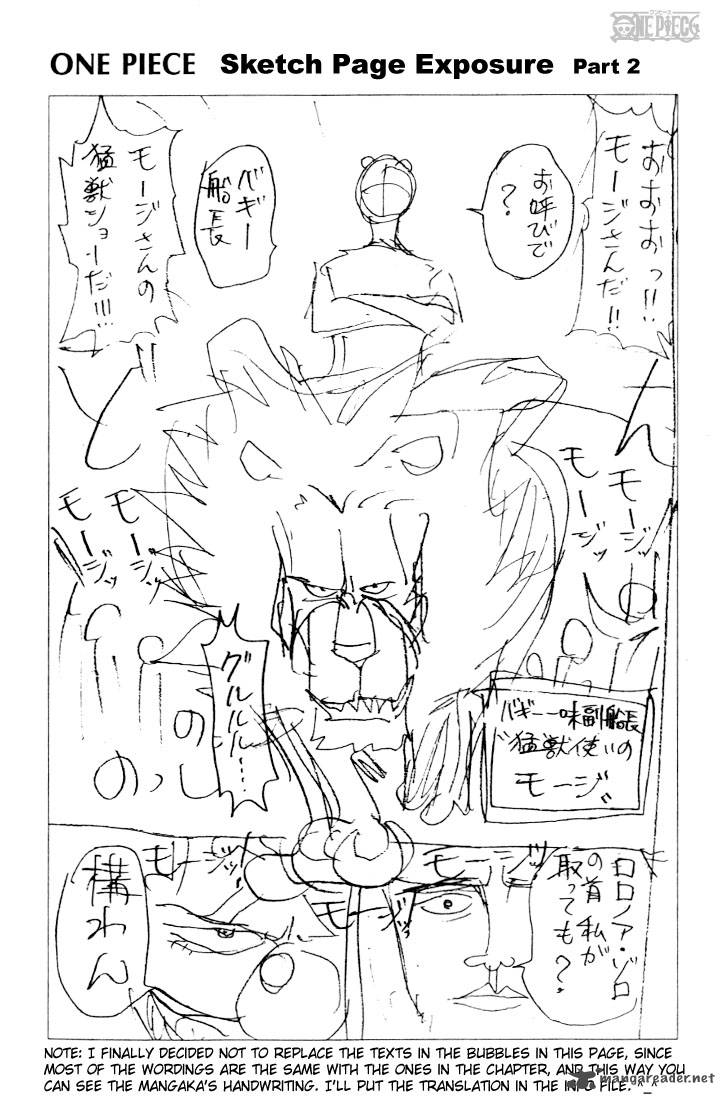 ワンピース
ONE PIECE
ONE PIECE Sketch Page Exposure Part 2
おおおっ!!
モージさんだ!!
お呼びで
?
バギー
船長
モージさんの
猛獣ショーだ!!!
どん
モージッ
モージッ
モージッ
モージッ
グルルル…
のっ
のし
バギー一味副船長
“猛獣使い”の
モージ
ロロノア・ゾロ
の首私が
取っても?
モージッ
モージッ
モージッ
構わん
NOTE: I FINALLY DECIDED NOT TO REPLACE THE TEXTS IN THE BUBBLES IN THIS PAGE, SINCE
MOST OF THE WORDINGS ARE THE SAME WITH THE ONES IN THE CHAPTER, AND THIS WAY YOU
CAN SEE THE MANGAKA'S HANDWRITING. I'LL PUT THE TRANSLATION IN THE INFO FILE. ^_^
mangareader.net